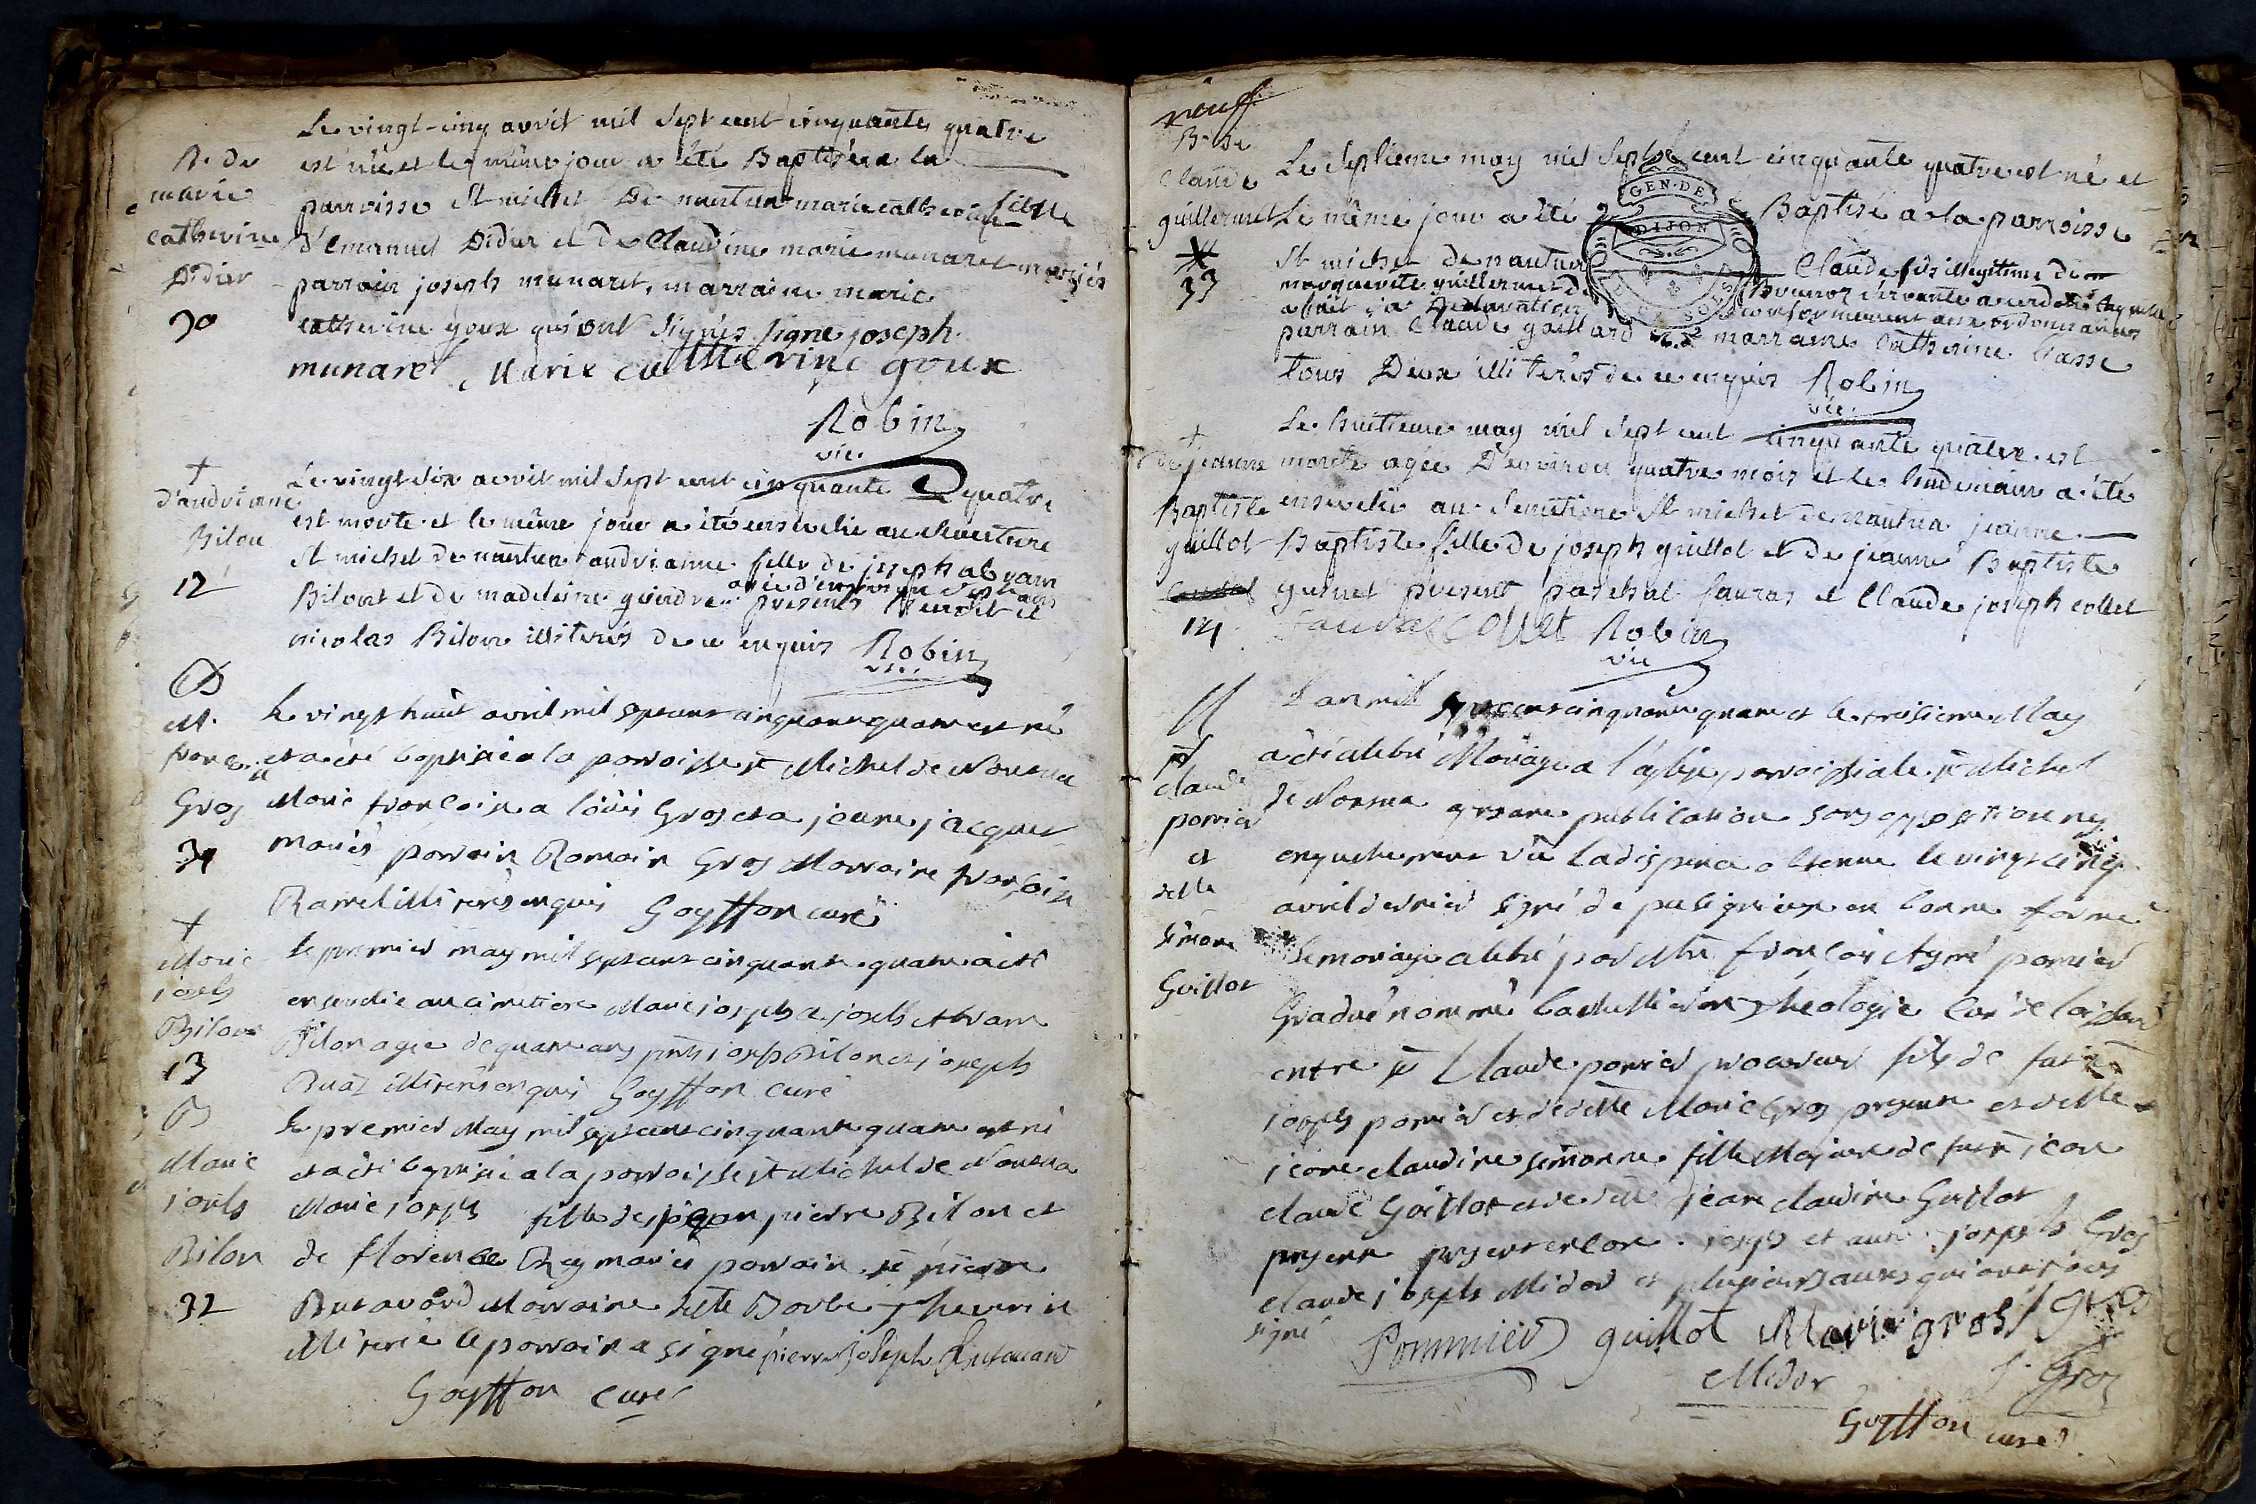 Le vingt-cinq avril mil sept cent cinquante quatre
est née et le même jour a été Baptisée a la
parroisse St michel De nantua marie catherine fille
d'Emanuel Didier et de Claudine marie munaret mariés
parrain joseph munaret, marraine marie
catherine goux qui ont signés signe joseph
munaret Marie Catherine goux
Robin
vic.
B. de
marie
catherine
Didier
30
Le vingt six avril mil sept cent cinquante quatre
est morte et le même jour a été ensevelie au cimetiere
St michel de nantua andrianne fille de joseph abram
Bilont et de madeleine agée d'environ sept ans
presents Benoit et
nicolas Bilon illiterés de ce enquis Robin
vic.
+
d'andrianne
Bilon
12
Le vingt huit avril mil sept cent cinquante quatre est né
et a été baptisé a la parroisse St Michel de Nantua
Marie francoise a Loüis Gros et a jeanne jacquet
mariés parrain Romain Gros Marraine francoise
Ravet illiterés enquis Goyffon curé
B
M.
francoise
Gros
31
Le premier may mil sept cent cinquante quatre a été
ensevelie au cimetiere Marie joseph a joseph Abram
Bilon agée de quatre ans pnts joseph Bilon et joseph
Buaz illiterés enquis Goyffon curé
+
Marie
joseph
Bilon
13
Le premier May mil sept cent cinquante quatre est né
et a été baptisé a la parroisse St Michel de Nantua
Marie joseph fille de pierre Bilon et
de florence Rey mariés parrain sr pierre
Butavand Marraine delle Barbe Thevenin
illiterée le parrain a signé pierre joseph Butavand
Goyffon curé
B
Marie
joseph
Bilon
32
neuf
B. de
Claude
guillermet
33
Le septieme may mil sept cent cinquante quatre est né et
Le même jour a été Baptisé a la parroisse
St michel de nantua Claude fils illegitime de
marguerite guillermet de servante
a fait sa declaration conformement aux ordonnances
parrain Claude gaillard et marraine Catherine
tous Deux illiterés de ce enquis Robin
vic.
GEN. DE
DIJON
Le huitieme may mil sept cent cinquante quatre est
morte agée D'environ quatre mois et le lendemain a été
ensevelie au Semetiere St michel de nantua jeanne
Baptiste fille de joseph guillot et de jeanne Baptiste
present paschal fauras et Claude joseph collet
Collet Robin
vic
+
de jeanne
Baptiste
guillot
14
L'an mil sept cent cinquante quatre et le troisieme May
a été celebré Mariage a l'eglise parroissiale St Michel
de Nantua publication sans opposition ny
empechement vû la dispence obtenue le vingt cinq
avril dernier signé de en bonne forme
le mariage celebré par Mre françois pomier
Gradué nommé en Theologie Curé
entre sr Claude pomier procureur fils de fut sr
joseph pomier et de delle Marie Gros presente et delle
jeane claudine simonne fille Majeure de fut sr jean
claude Guillot et de delle jeane claudine Guillot
presente presents encore joseph Gros
claude joseph Midor et plusieurs autres qui ont tous
signé Pommier guillot Marie gros J gros
Midor J. Gros
Goyffon curé
M
sr
Claude
pomier
et
delle
simone
Guillot